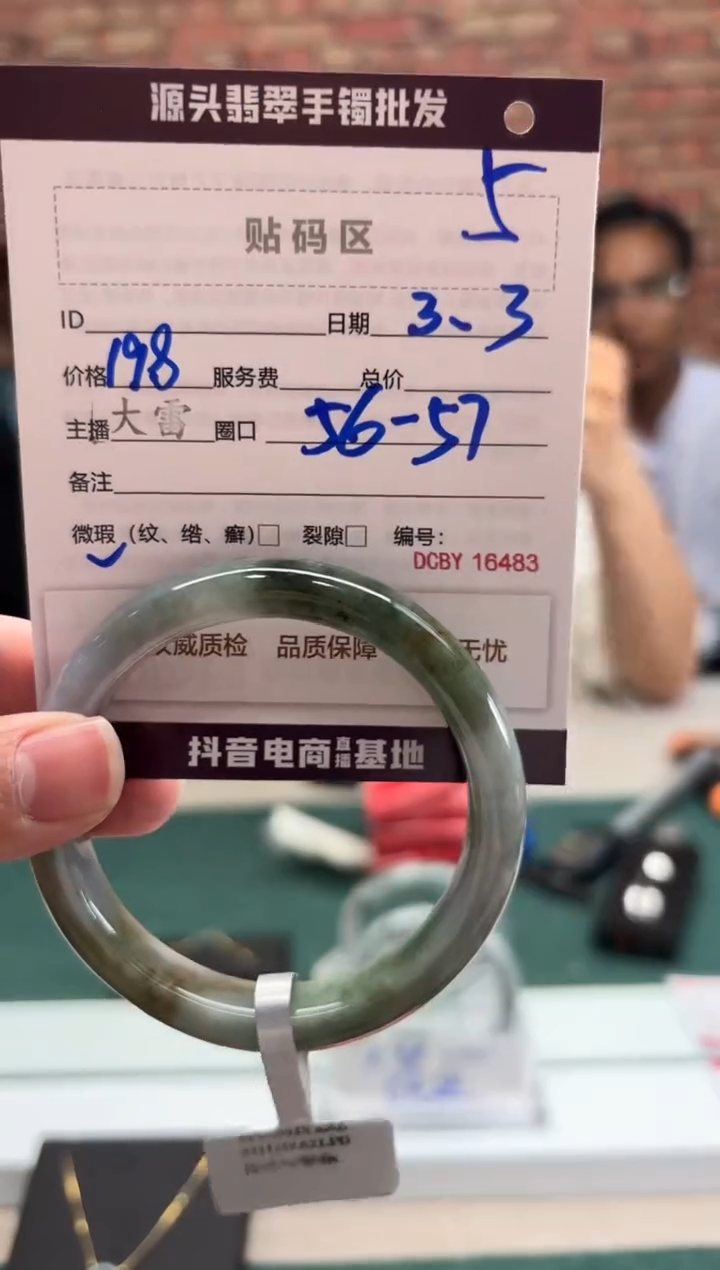 源头翡翠手镯批发
5
贴码区
ID 日期 3、3
价格 198 服务费 总价
主播 大雷 圈口 56-57
备注
微瑕（纹、绺、癣）□ 裂隙□ 编号：
✓ DCBY 16483
威质检 品质保障 无忧
抖音电商直播基地